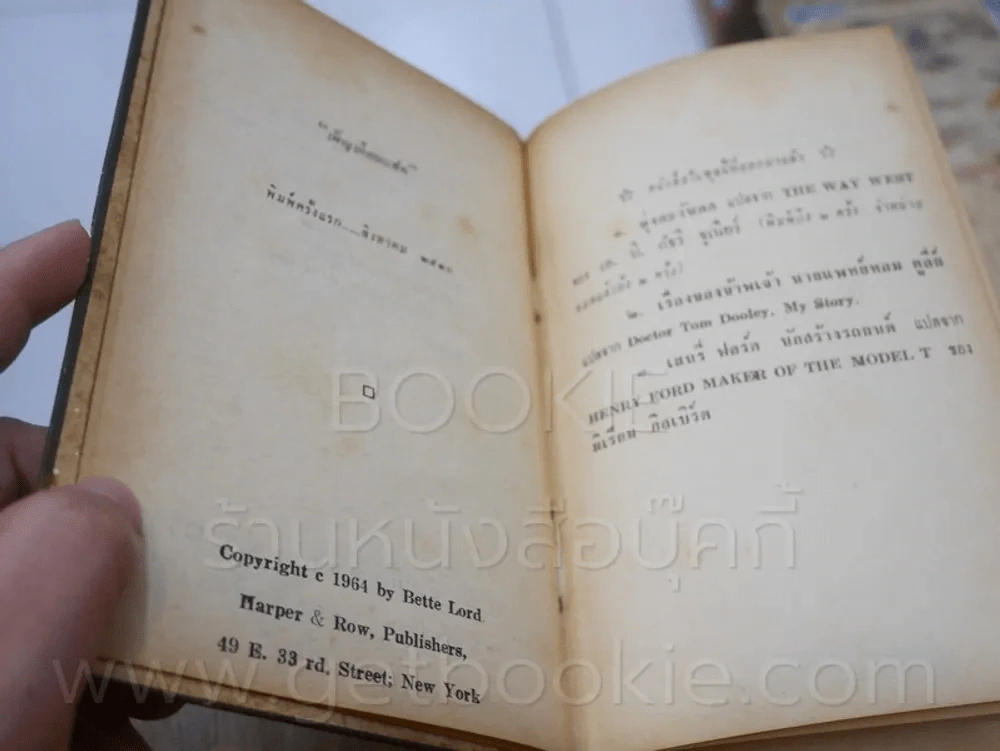 พิมพ์ครั้งแรก....สิงหาคม ๒๕๑๐
Copyright c 1964 by Bette Lord
Harper & Row, Publishers,
49 E. 33 rd. Street; New York
หนังสือในชุดนี้ที่ออกมาแล้ว
แปลจาก THE WAY WEST
ของ เอ. บี. กัธรี จูเนียร์ (พิมพ์ถึง ๒ ครั้ง จำหน่าย
หมดแล้วทั้ง ๒ ครั้ง)
๒. เรื่องของข้าพเจ้า นายแพทย์ทอม ดูลีย์
แปลจาก Doctor Tom Dooley, My Story.
เฮนรี่ ฟอร์ด นักสร้างรถยนต์ แปลจาก
HENRY FORD MAKER OF THE MODEL T ของ
มิเรียม กิลเบิร์ต
BOOKIE
ร้านหนังสือบุ๊คกี้
www.getbookie.com